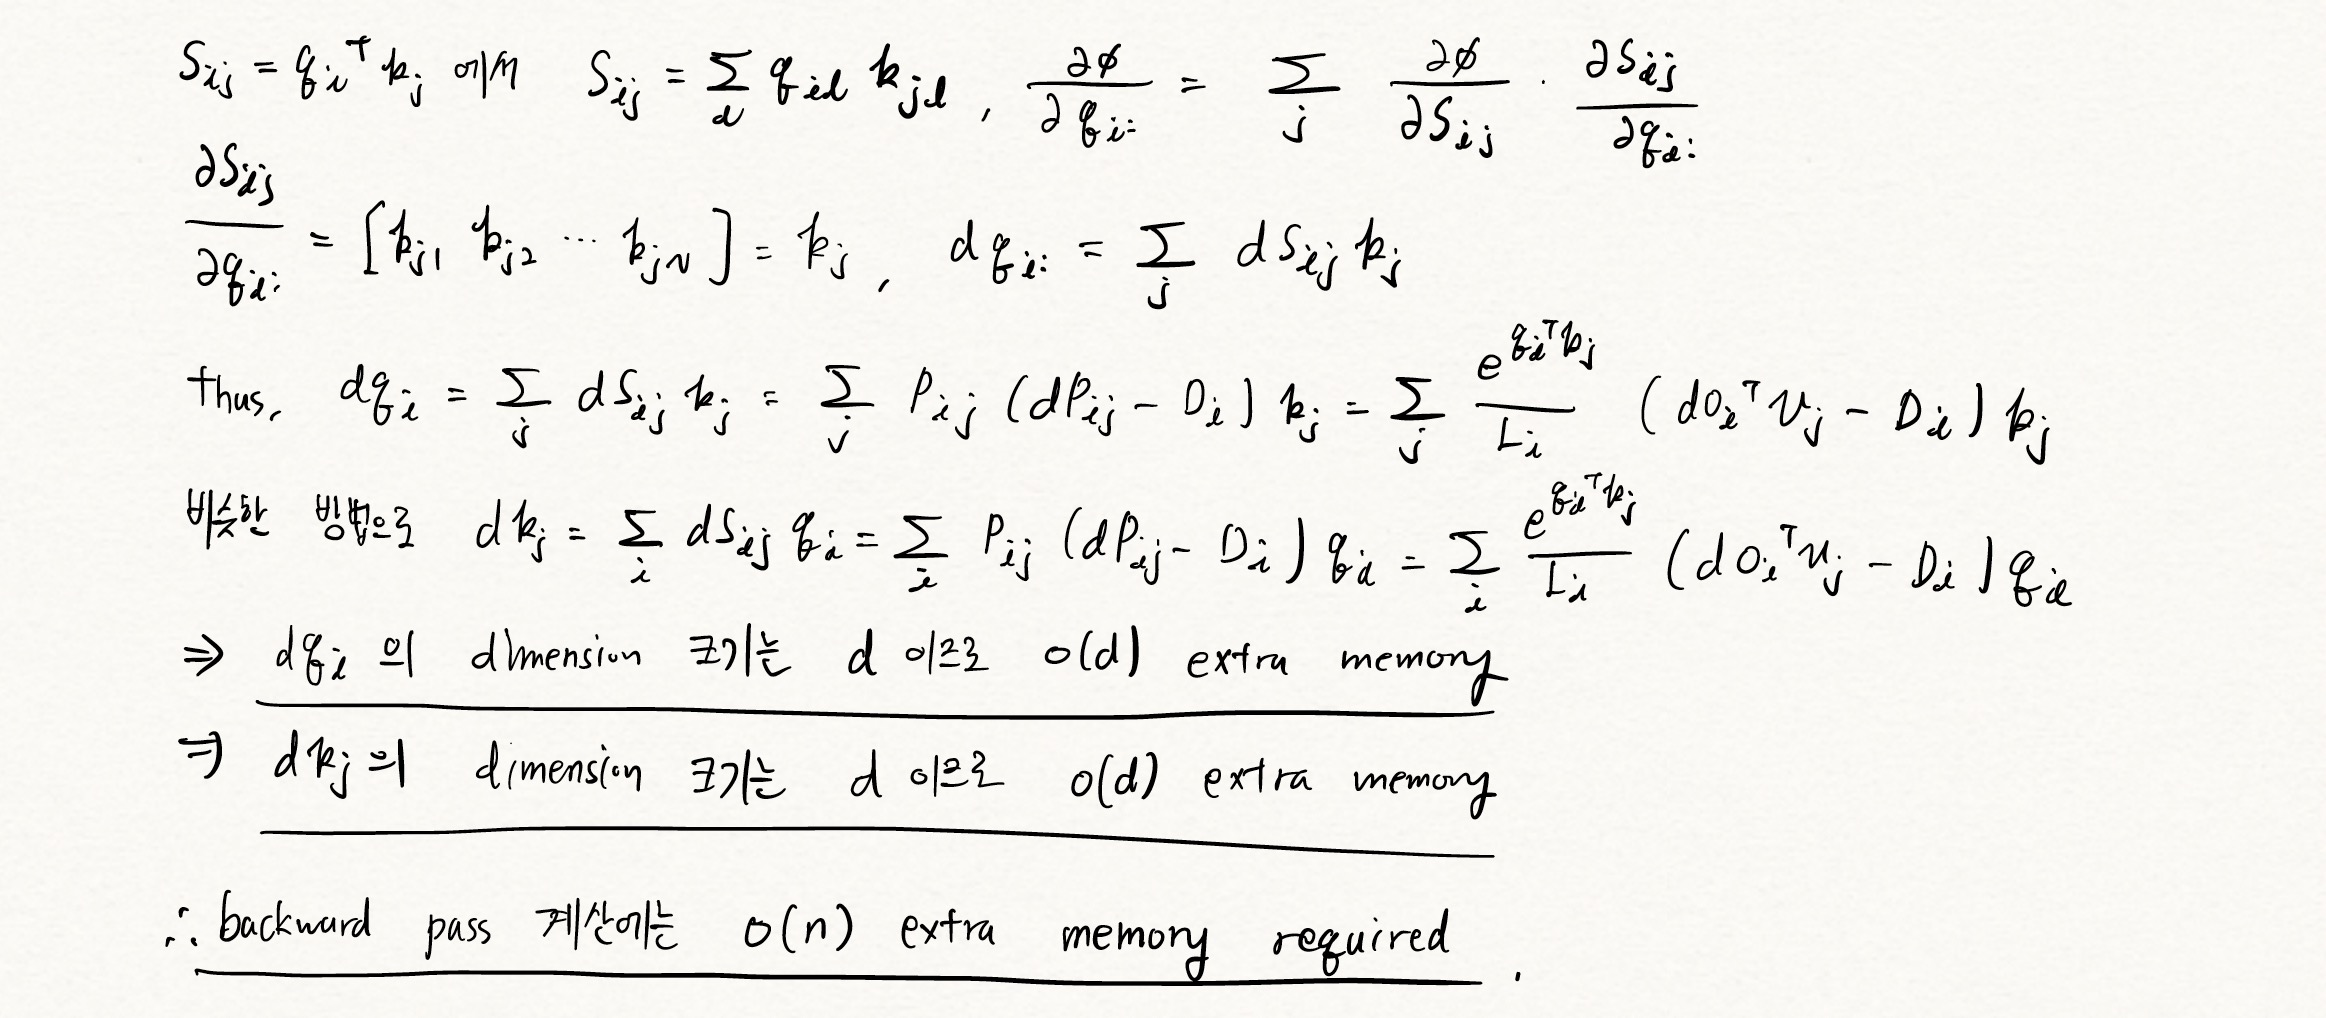 S_ij = q_i^T k_j 에서 S_ij = Σ_d q_id k_jd , ∂φ/∂q_i: = Σ_j ∂φ/∂S_ij · ∂S_ij/∂q_i:
∂S_ij/∂q_i: = [k_j1 k_j2 ⋯ k_jN] = k_j , dq_i: = Σ_j dS_ij k_j
thus, dq_i = Σ_j dS_ij k_j = Σ_j P_ij (dP_ij - D_i) k_j = Σ_j e^{q_i^T k_j}/L_i (do_i^T v_j - D_i) k_j
비슷한 방법으로 dk_j = Σ_i dS_ij q_i = Σ_i P_ij (dP_ij - D_i) q_i = Σ_i e^{q_i^T k_j}/L_i (do_i^T v_j - D_i) q_i
⇒ dq_i 의 dimension 크기는 d 이므로 O(d) extra memory
⇒ dk_j 의 dimension 크기는 d 이므로 O(d) extra memory
∴ backward pass 계산에는 O(n) extra memory required .